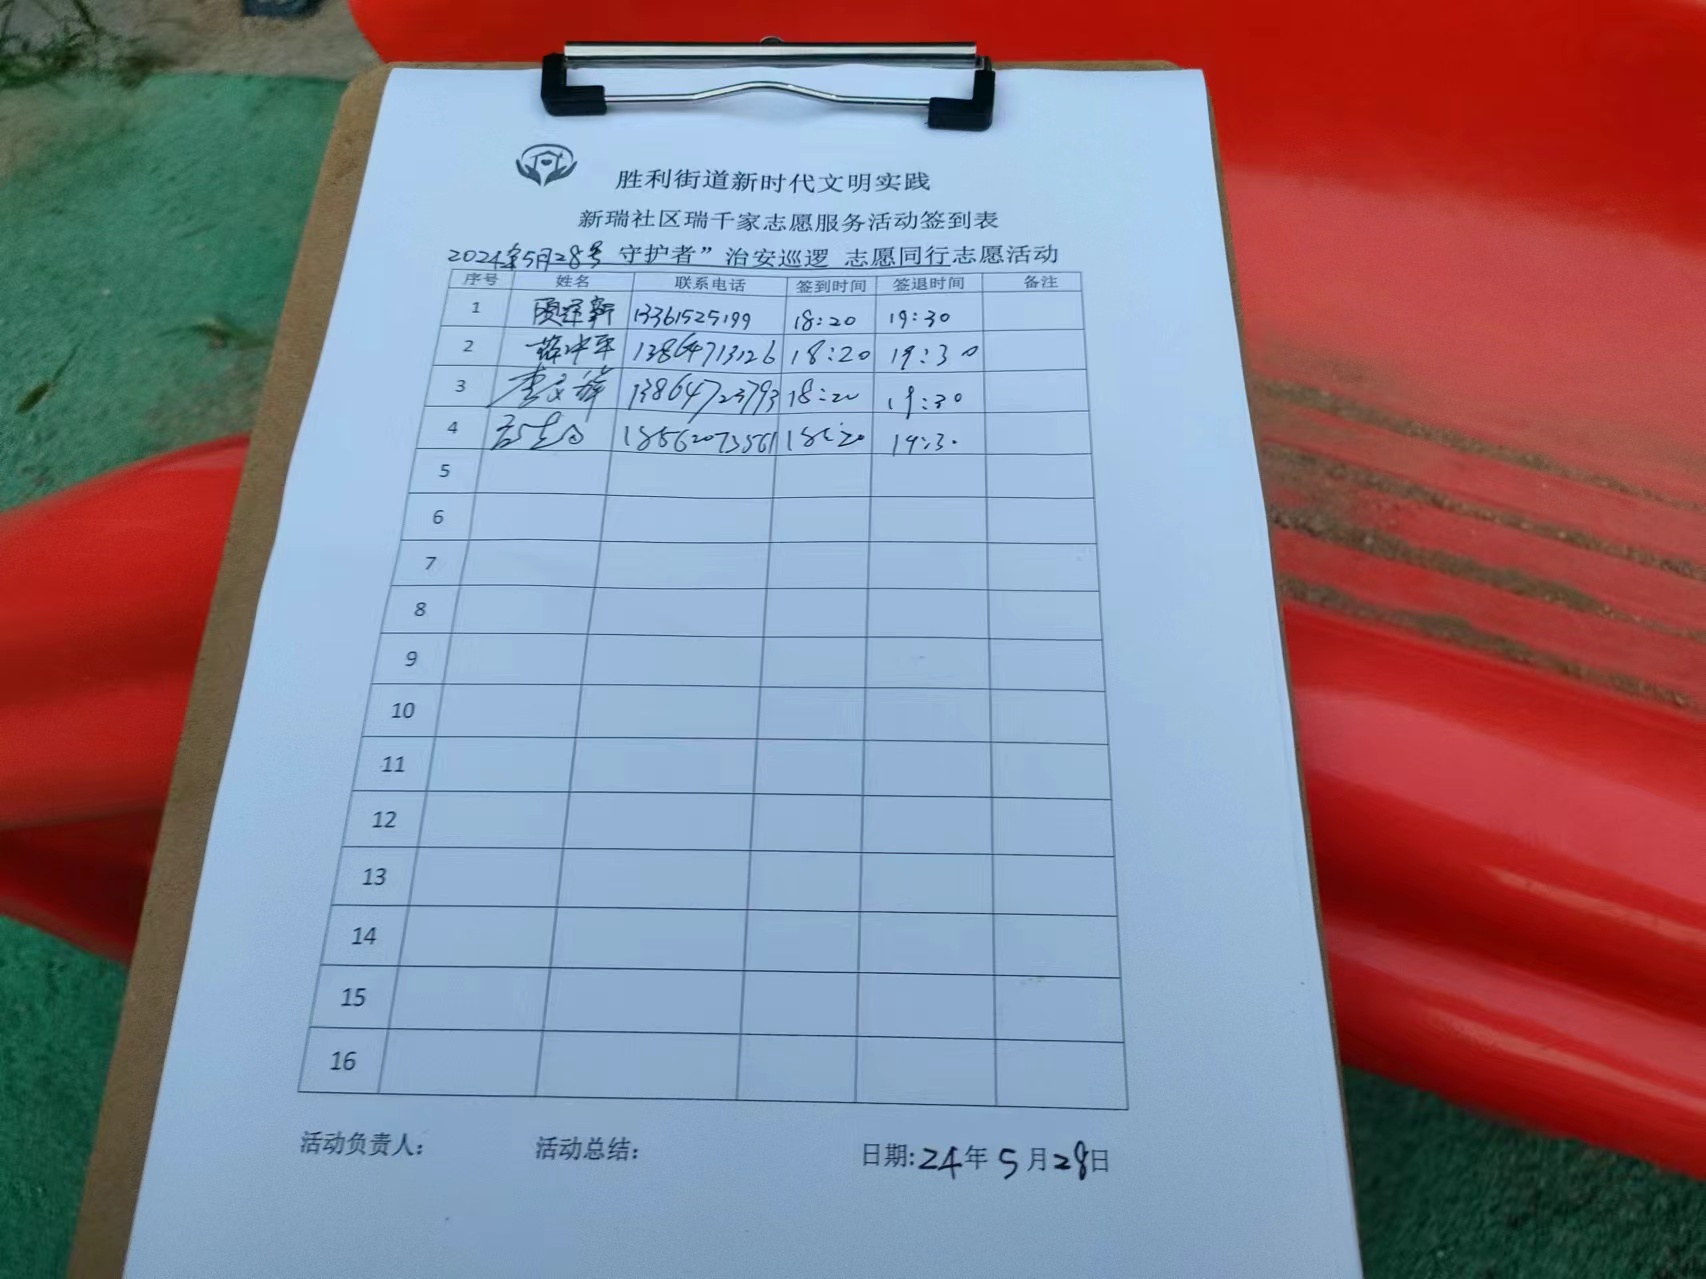 胜利街道新时代文明实践
新瑞社区瑞千家志愿服务活动签到表
2024年5月28号 守护者”治安巡逻 志愿同行志愿活动
序号 姓名 联系电话 签到时间 签退时间 备注
1 13361525199 18:20 19:30
2 薛冲平 13864713126 18:20 19:30
3 李文祥 13864723793 18:20 19:30
4 18562073561 18:20 19:30
5
6
7
8
9
10
11
12
13
14
15
16
活动负责人: 活动总结: 日期:24年5月28日